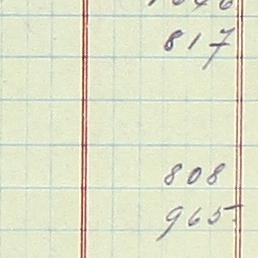 817
808
965